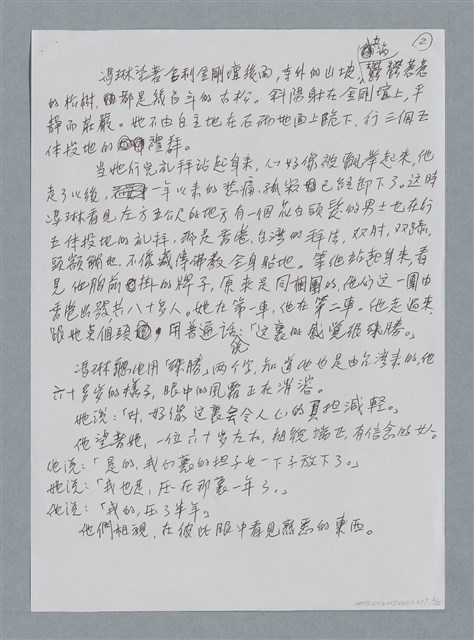 ②
馮琳望著舍利金剛壇後面,寺外的山坡鬱鬱蒼蒼
的松樹,都是幾百年的古松。斜陽射在金剛壇上,平
靜而莊嚴。她不由自主地在石砌地面上跪下,行三個五
體投地的禮拜。
當她行完禮拜站起身來,心好像被飄舉起來,他
走了以後,一年以來的悲痛、孤寂已經卸下了。這時
馮琳看見左方五公尺的地方有一個花白頭髮的男士也在行
五體投地的禮拜,那是香港、台灣的拜法,双肘,双膝,
頭額觸地,不像藏傳佛教全身貼地。等他站起身來,看
見他胸前掛的牌子,原來是同個團的,他們這一團由
香港出發共八十多人。她在第一車,他在第二車。他走過來,
跟她点個頭,用普通话说:「這裏的感覺很殊勝。」
馮琳聽他用「殊勝」兩个字,知道他也是由台灣來的,他
六十多岁的樣子,眼中的風霜正在消溶。
她說:「对,好像這裏会令人心的負担減輕。」
他望著她,一位六十岁左右,相貌端正,有信念的女人。
他说:「是的,我心裏的担子也一下子放下了。」
她说:「我也是,压在那裏一年了。」
他说:「我的,压了半年」
他們相視,在彼此眼中看見熟悉的東西。